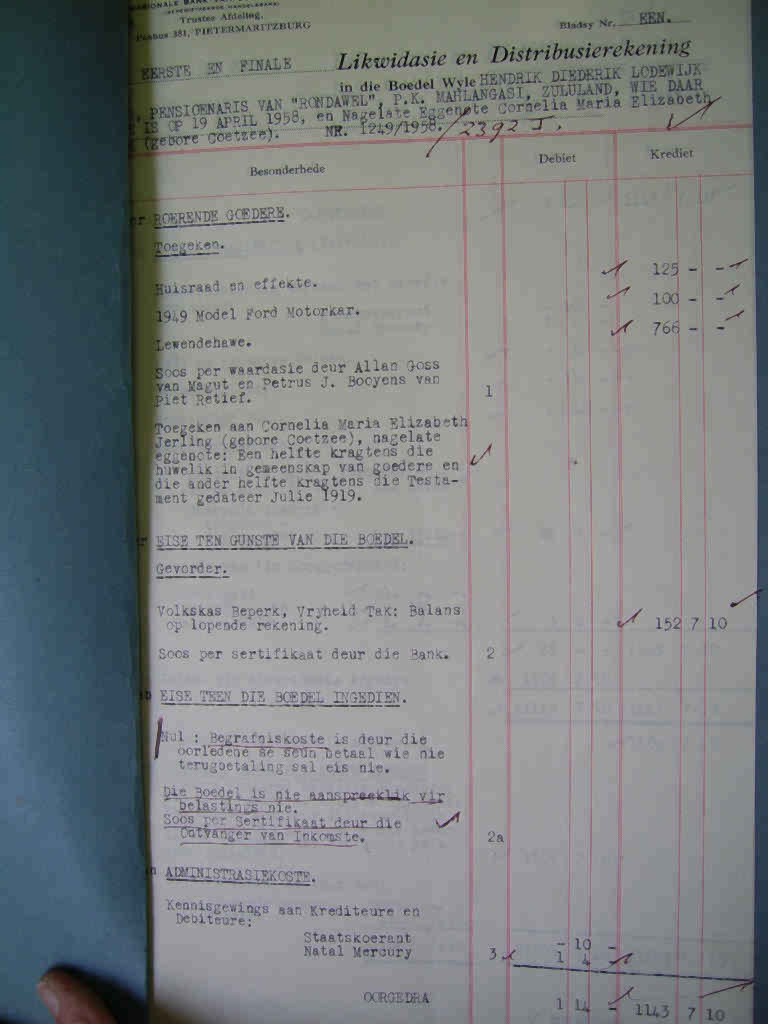 NASIONALE BANK VAN
Trustee Afdeling,
Posbus 381, PIETERMARITZBURG
Bladsy Nr. EEN.
EERSTE EN FINALE Likwidasie en Distribusierekening
in die Boedel Wyle HENDRIK DIEDERIK LODEWIJK
, PENSIOENARIS VAN "RONDAWEL", P.K. MAHLANGASI, ZULULAND, WIE DAAR
IS OP 19 APRIL 1958, en Nagelate Eggenote Cornelia Maria Elizabeth
(gebore Coetzee). NR. 1249/1958. / 2392 J.
Besonderhede Debiet Krediet
ROERENDE GOEDERE.
Toegeken.
Huisraad en effekte. 125 - -
1949 Model Ford Motorkar. 100 - -
Lewendehawe. 766 - -
Soos per waardasie deur Allan Goss
van Magut en Petrus J. Booyens van
Piet Retief. 1
Toegeken aan Cornelia Maria Elizabeth
Jerling (gebore Coetzee), nagelate
eggenote: Een helfte kragtens die
huwelik in gemeenskap van goedere en
die ander helfte kragtens die Testa-
ment gedateer Julie 1919.
EISE TEN GUNSTE VAN DIE BOEDEL.
Gevorder.
Volkskas Beperk, Vryheid Tak: Balans
op lopende rekening. 152 7 10
Soos per sertifikaat deur die Bank. 2
EISE TEEN DIE BOEDEL INGEDIEN.
Nul : Begrafniskoste is deur die
oorledene se seun betaal wie nie
terugbetaling sal eis nie.
Die Boedel is nie aanspreeklik vir
belastings nie.
Soos per Sertifikaat deur die
Ontvanger van Inkomste. 2a
ADMINISTRASIEKOSTE.
Kennisgewings aan Krediteure en
Debiteure:
Staatskoerant - 10 -
Natal Mercury 3 1 4 -
OORGEDRA 1 14 - 1143 7 10